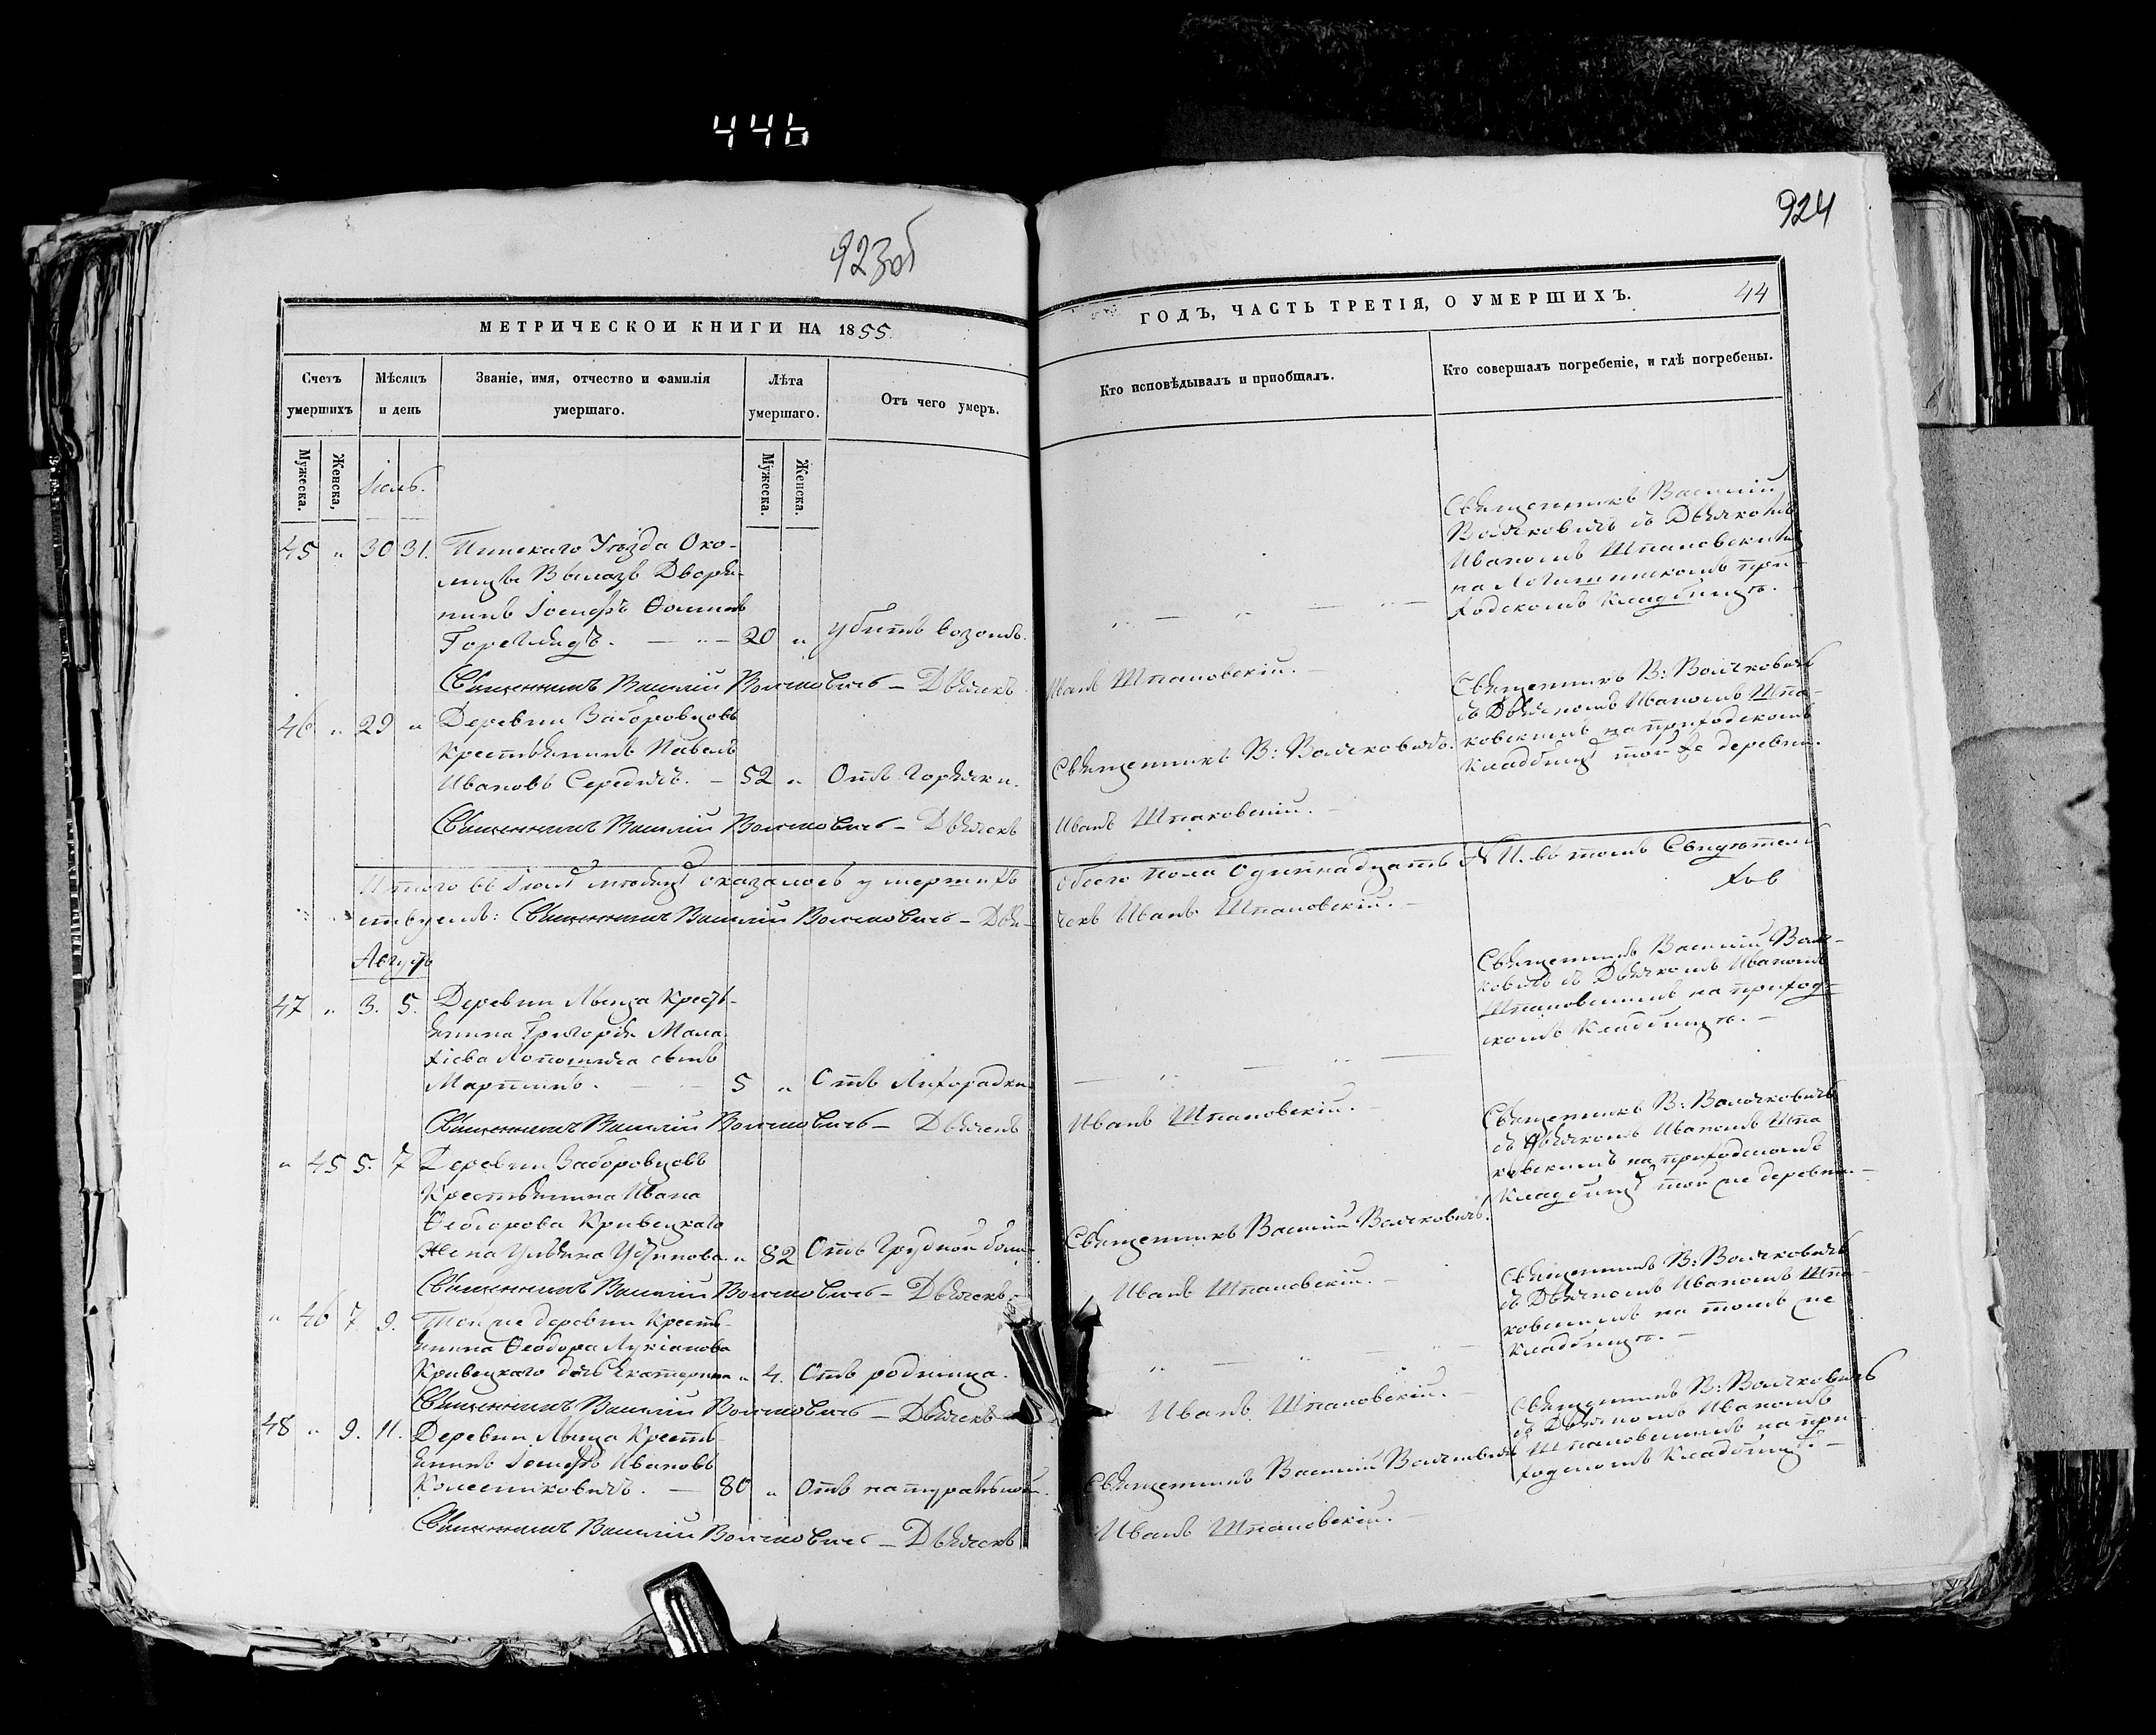 446
923об
924
МЕТРИЧЕСКОЙ КНИГИ НА 1855
ГОДЪ, ЧАСТЬ ТРЕТІЯ, О УМЕРШИХЪ.
44
Счетъ умершихъ
Мѣсяцъ и день
Званіе, имя, отчество и фамилія умершаго.
Лѣта умершаго.
Отъ чего умеръ.
Кто исповѣдывалъ и пріобщалъ.
Кто совершалъ погребеніе, и гдѣ погребены.
Мужеска.
Женска,
Мужеска.
Женска.
Іюль.
45 " 30 31. Пинскаго Уѣзда Око-
лицы Вылазъ Дворя-
нинъ Іосифъ Ѳоминъ
Гореглядъ. — "— 20 " убитъ возомъ.
Священникъ Василій
съ Дьячкомъ
Иваномъ Шпаковскимъ
на Логишинскомъ при-
ходскомъ Кладбищѣ.
Священникъ Василій — Дьячекъ Иванъ Шпаковскій.
46 " 29 " Деревни Заборовцовъ
Крестьянинъ Павелъ
Ивановъ Середичъ. — 52 " Отъ Горячки.
Священникъ В:
Священникъ В:
съ Дьячкомъ Иваномъ Шпа-
ковскимъ на приходскомъ
Кладбищѣ той же деревни.
Священникъ Василій — Дьячекъ Иванъ Шпаковскій.
Итого въ Іюлѣ мѣсяцѣ оказалось умершихъ обоего пола Одинадцать № 11. въ томъ Свидѣтель-
ствуемъ: Священникъ Василій — Дья-чекъ Иванъ Шпаковскій.
Августъ
47 " 3. 5. Деревни Лыща Кресть-
янина Григорія Мала-
хіева сынъ
Мартинъ. — 5 " Отъ Лихорадки
Священникъ Василій
съ Дьячкомъ Иваномъ
Шпаковскимъ на приход-
скомъ Кладбищѣ.—
Священникъ Василій — Дьячекъ Иванъ Шпаковскій.
" 45 5. 7 Деревни Заборовцовъ
Крестьянина Ивана
Ѳеодорова Кривецкаго
Жена Ульяна Устинова. " 82 Отъ Грудной боли.
Священникъ Василій
Священникъ В:
съ Дьячкомъ Иваномъ Шпа
ковскимъ на приходскомъ
Кладбищѣ той же деревни.—
Священникъ Василій — Дьячекъ. Иванъ Шпаковскій.
" 46 7 9. Той же деревни Кресть-
янина Ѳеодора Лукіанова
Кривецкаго дочь Екатерина " 4. Отъ родимца.
Священникъ В:
съ Дьячкомъ Иваномъ Шпа-
ковскимъ на томъ же
Кладбищѣ.—
Священникъ Василій — Дьячекъ Иванъ Шпаковскій.
48 " 9. 11. Деревни Лыща Кресть-
янинъ Іосифъ Ивановъ
Колесниковичъ. — 80 " Отъ натуральной.
Священникъ Василій
Священникъ В:
съ Дьячкомъ Иваномъ
Шпаковскимъ на при-
ходскомъ Кладбищѣ.—
Священникъ Василій — Дьячекъ Иванъ Шпаковскій.